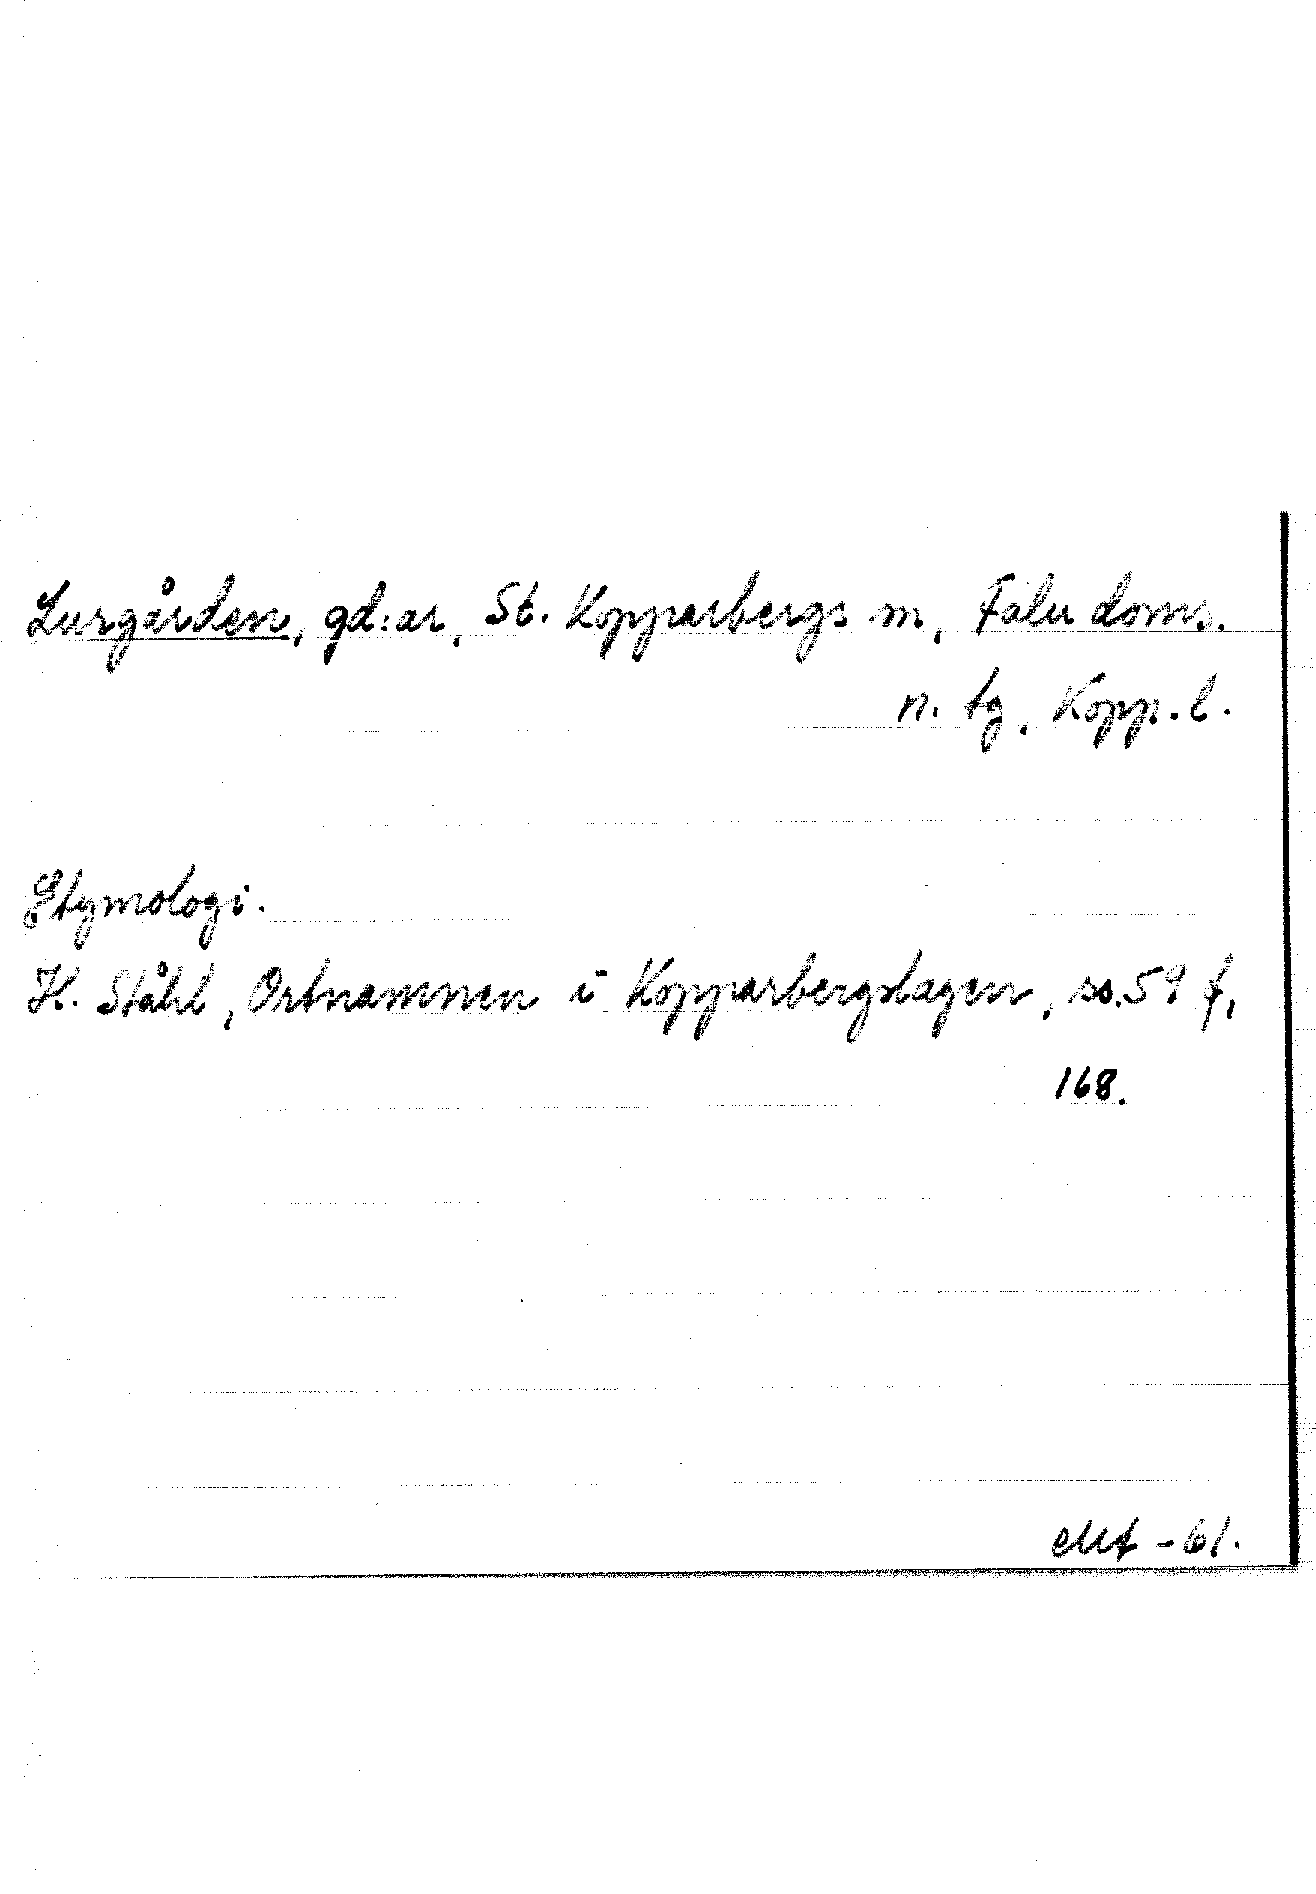 Lurgården, gd:ar, St. Kopparbergs sn, Falu doms.
n. tg, Kopp. l.
Etymologi.
H. Ståhl, Ortnamnen i Kopparbergslagen, ss. 59 f,
168.
-61.